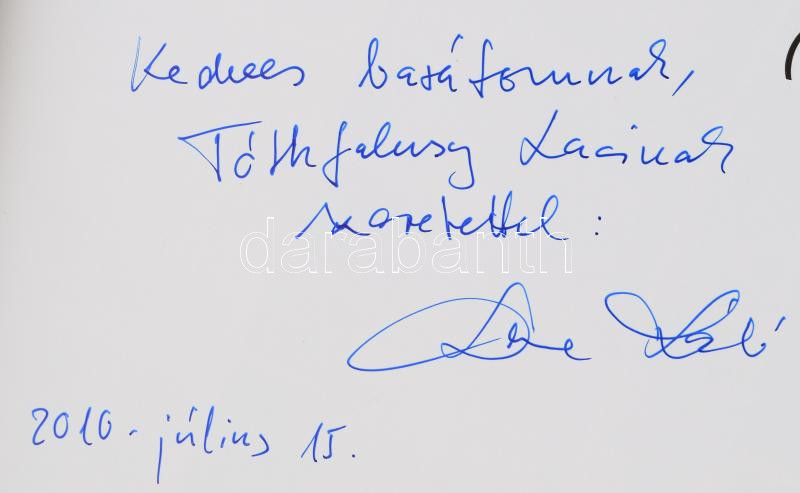 Kedves barátomnak,
Tóthfalusy Lacinak
szeretettel:
darabanth
2010. július 15.